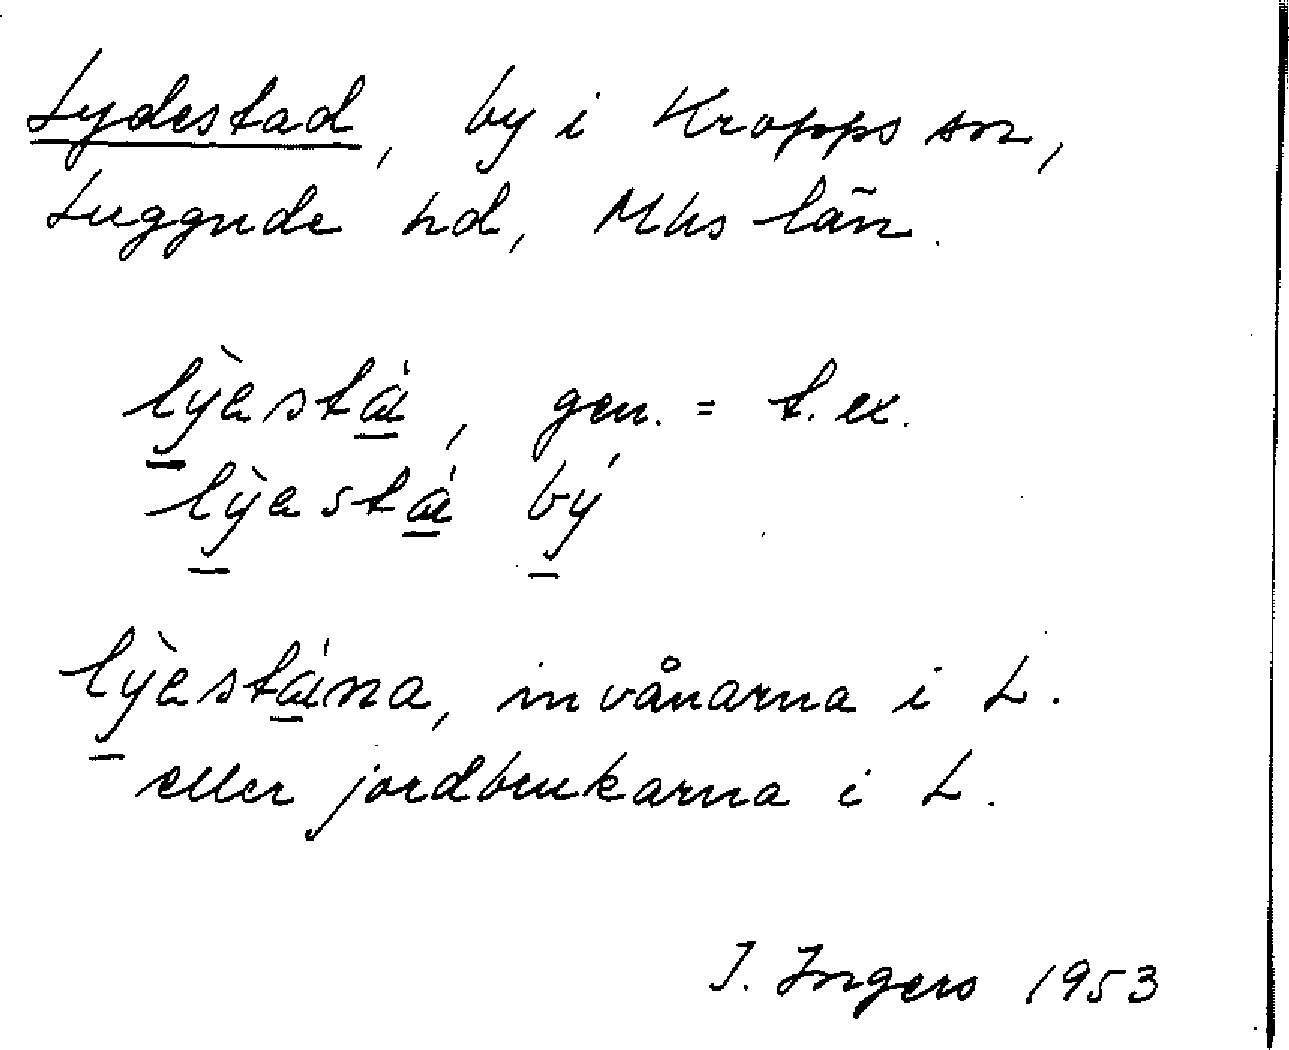 Lydestad, by i Kropps sn,
Luggude hd, Mhs län.
lỳestá, gen. = t. ex.
lỳestá bý
lỳestána, invånarna i L.
eller jordbrukarna i L.
I. Ingers 1953